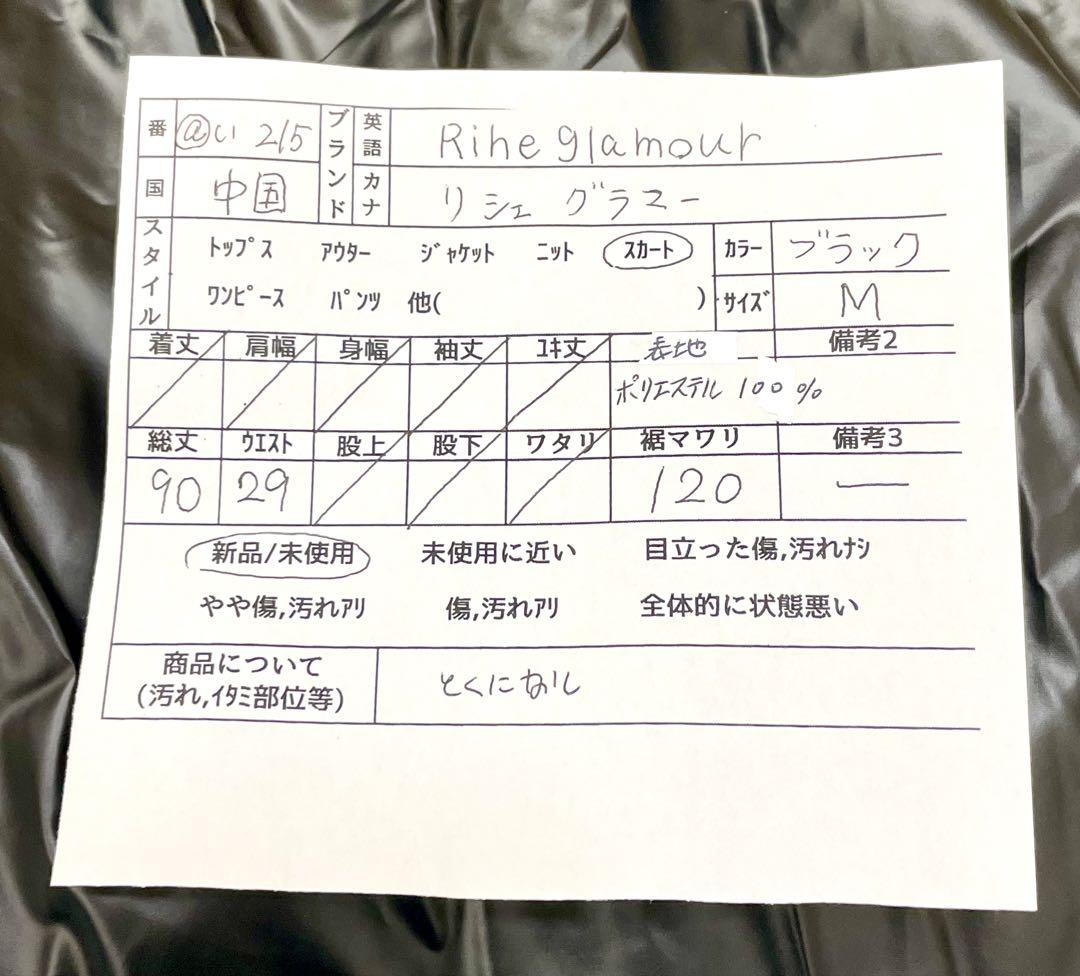 番 @い215 ブランド 英語 Rihe glamour
国 中国 カナ リシェ グラマー
スタイル トップス アウター ジャケット ニット スカート カラー ブラック
ワンピース パンツ 他( ) サイズ M
着丈 肩幅 身幅 袖丈 ユキ丈 表地 備考2
ポリエステル 100%
総丈 ウエスト 股上 股下 ワタリ 裾マワリ 備考3
90 29 120 —
新品/未使用 未使用に近い 目立った傷,汚れナシ
やや傷,汚れアリ 傷,汚れアリ 全体的に状態悪い
商品について
(汚れ,イタミ部位等) とくになし